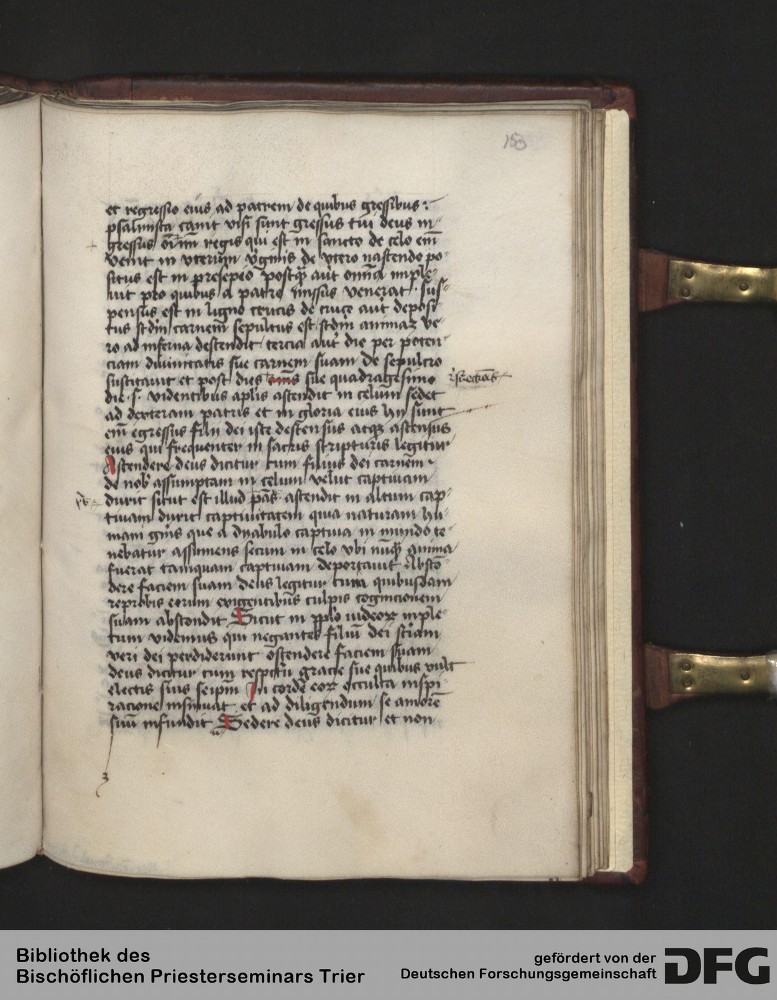 153
et regressio eius ad patrem de quibus gressibus
psalmista canit visi sunt gressus tui deus in
gressus regis qui est in sancto de celo em̄
venit in uterum v̓ginis de utero nascendo po
situs est in presepio postq̄ aut om̄ia imple
uit pro quibus a patre missus venerat. Sus
pensus est in ligno crucis de cruce aut deposi
tus scd̄m carnem sepultus est scd̄m animam ve
ro ad inferna descendit tercia aut̄ die per poten
ciam diuinitatis sue carnem suam de sepulcro
suscitauit et post dies sue quadragesimo
die .s. videntibus aplis̄ ascendit in celum sedet
ad dexteram patris et in gloria eius hii sunt
em̄ egressus filii dei iste descensus atq̄ ascensus
eius qui frequenter in sacris scripturis legitur
Ascendere deus dicitur cum filius dei carnem
de nob̓ assumptam in celum velut captiuam
duxit sicut est illud ascendit in altum cap
tiuam duxit captiuitatem quia naturam hu
mani gn̄is que a dyabulo captiua in mundo te
nebatur assumens secum in celo vbi nūq̄ anima
fuerat tamquam captiuam deportauit Abscō
dere faciem suam deus legitur cum quibusdam
reprobis eorum exigentibus culpis cognicionem
suam abscondit Sicut in pplo iudeorꝝ imple
tum videmus qui negantes filiū dei sciam
veri dei perdiderunt ostendere faciem suam
deus dicitur cum respectū gracie sue quibus vult
electis suis seipm̄ In corde eorꝝ occulta inspi
racione insinuat et ad diligendum se amorē
suū infundit Sedere deus dicitur et non
Bibliothek des
Bischöflichen Priesterseminars Trier
gefördert von der
Deutschen Forschungsgemeinschaft
DFG